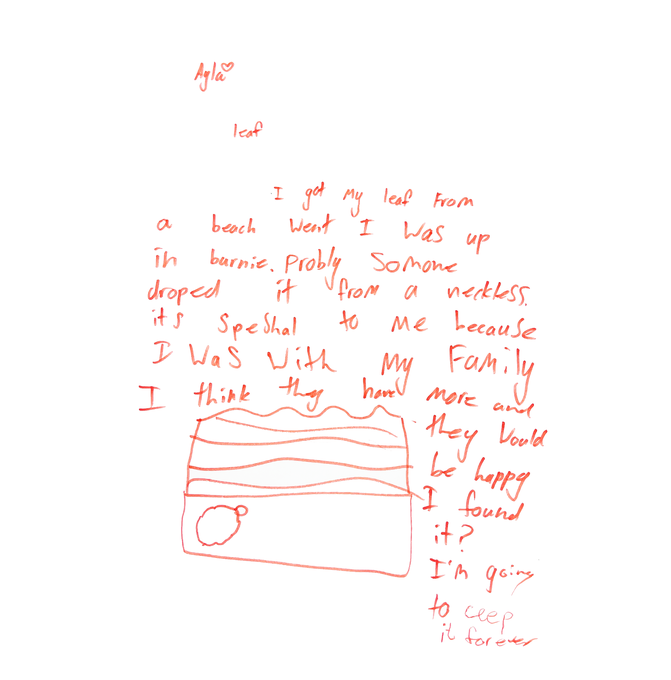 Ayla
leaf
I got my leaf from
a beach went I was up
in burnie. Probly Somone
droped it from a neckless.
it's speshal to me because
I was with my Family
I think they have more and
they would
be happy
I found
it?
I'm going
to ceep
it forever